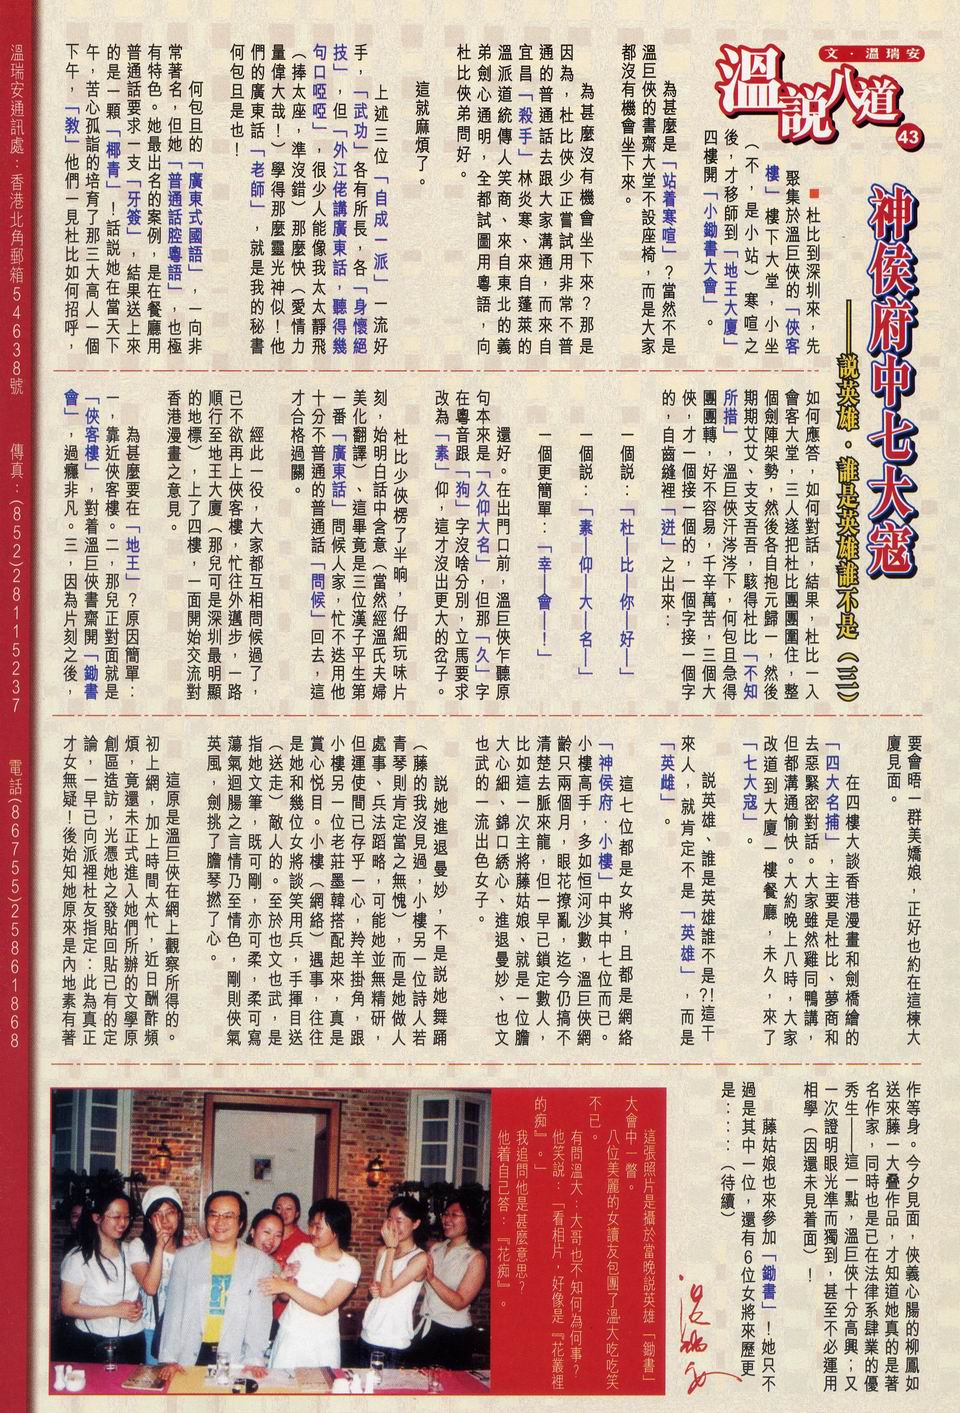 文‧溫瑞安
溫說八道
43
神侯府中七大寇
——說英雄‧誰是英雄誰不是（三）
■杜比到深圳來，先
聚集於溫巨俠的「俠客
樓」樓下大堂，小坐
（不，是小站）寒喧之
後，才移師到「地王大廈」
四樓開「小鋤書大會」。
為甚麼是「站着寒喧」？當然不是
溫巨俠的書齋大堂不設座椅，而是大家
都沒有機會坐下來。
為甚麼沒有機會坐下來？那是
因為，杜比俠少正嘗試用非常不普
通的普通話去跟大家溝通，而來自
宜昌「殺手」林炎寒、來自蓬萊的
溫派道統傳人笑商、來自東北的義
弟劍心通明，全都試圖用粵語，向
杜比俠弟問好。
這就麻煩了。
上述三位「自成一派」一流好
手，「武功」各有所長，各「身懷絕
技」，但「外江佬講廣東話，聽得幾
句口啞啞」，很少人能像我太太靜飛
（捧太座，準沒錯）那麼快（愛情力
量偉大哉！）學得那麼靈光神似！他
們的廣東話「老師」，就是我的秘書
何包且是也！
何包且的「廣東式國語」，一向非
常著名，但她「普通話腔粵語」，也極
有特色。她最出名的案例，是在餐廳用
普通話要求一支「牙簽」，結果送上來
的是一顆「椰青」！話說她在當天下
午，苦心孤詣的培育了那三大高人一個
下午，「教」他們一見杜比如何招呼，
如何應答，如何對話，結果，杜比一入
會客大堂，三人遂把杜比團團圍住，整
個劍陣架勢，然後各自抱元歸一，然後
期期艾艾、支支吾吾，駭得杜比「不知
所措」，溫巨俠汗涔涔下，何包且急得
團團轉，好不容易，千辛萬苦，三個大
俠，才一個接一個的，一個字接一個字
的，自齒縫裡「迸」之出來：
一個說：「杜—比—你—好—」
一個說：「素—仰—大—名—」
一個更簡單：「幸—會—！」
還好。在出門口前，溫巨俠乍聽原
句本來是「久仰大名」，但那「久」字
在粵音跟「狗」字沒啥分別，立馬要求
改為「素」仰，這才沒出更大的岔子。
杜比少俠楞了半晌，仔細玩味片
刻，始明白話中含意（當然經溫氏夫婦
美化翻譯）、這畢竟是三位漢子平生第
一番「廣東話」問候人家，忙不迭用他
十分不普通的普通話「問候」回去，這
才合格過關。
經此一役，大家都互相問候過了，
已不欲再上俠客樓，忙往外邁步，一路
順行至地王大廈（那兒可是深圳最明顯
的地標），上了四樓，一面開始交流對
香港漫畫之意見。
為甚麼要在「地王」？原因簡單：
一，靠近俠客樓。二，那兒正對面就是
「俠客樓」，對着溫巨俠書齋開「鋤書
會」，過癮非凡。三，因為片刻之後，
要會晤一群美嬌娘，正好也約在這棟大
廈見面。
在四樓大談香港漫畫和劍橋繪的
「四大名捕」，主要是杜比、夢商和
去惡緊密對話。大家雖然雞同鴨講，
但都溝通愉快。大約晚上八時，大家
改道到大廈一樓餐廳，未久，來了
「七大寇」。
說英雄、誰是英雄誰不是？！這干
來人，就肯定不是「英雄」，而是
「英雌」。
這七位都是女將，且都是網絡
「神侯府‧小樓」中其中七位而已。
小樓高手，多如恒河沙數，溫巨俠網
齡只兩個月，眼花撩亂，迄今仍搞不
清楚去脈來龍，但一早已鎖定數人，
比如這一次主將藤姑娘、就是一位膽
大心細、錦口綉心、進退曼妙、也文
也武的一流出色女子。
說她進退曼妙，不是說她舞踊
（藤的我沒見過，小樓另一位詩人若
青琴則肯定當之無愧），而是她做人
處事、兵法蹈略，可能她並無精研，
但運使間已存乎一心，羚羊掛角，跟
小樓另一位老莊墨韓搭配起來，真是
賞心悅目。小樓（網絡）遇事，往往
是她和幾位女將談笑用兵，手揮目送
（送走）敵人的。至於也文也武，是
指她文筆，既可剛，亦可柔，柔可寫
蕩氣迴腸之言情乃至情色，剛則俠氣
英風，劍挑了膽琴撚了心。
這原是溫巨俠在網上觀察所得的。
初上網，加上時間太忙，近日酬酢頻
煩，竟還未正式進入她們所辦的文學原
創區造訪，光憑她之發貼回貼已有的定
論，一早已向派裡杜友指定：此為真正
才女無疑！後始知她原來是內地素有著
作等身。今夕見面，俠義心腸的柳鳳如
送來藤一大叠作品，才知道她真的是著
名作家，同時也是已在法律系肆業的優
秀生——這一點，溫巨俠十分高興；又
一次證明眼光準而獨到，甚至不必運用
相學（因還未見着面）！
藤姑娘也來參加「鋤書」！她只不
過是其中一位，還有6位女將來歷更
是‥‥‥（待續）
溫瑞安
這張照片是攝於當晚說英雄「鋤書」
大會中一瞥。
八位美麗的女讀友包圍了溫大吃吃笑
不已。
有問溫大：大哥也不知何為何事？
他笑說：「看相片，好像是『花叢裡
的痴』。」
我追問他是甚麼意思？
他着自己答：『花痴』。
溫瑞安通訊處：香港北角郵箱54638號　傳真：(852)28115237　電話(86755)25861868